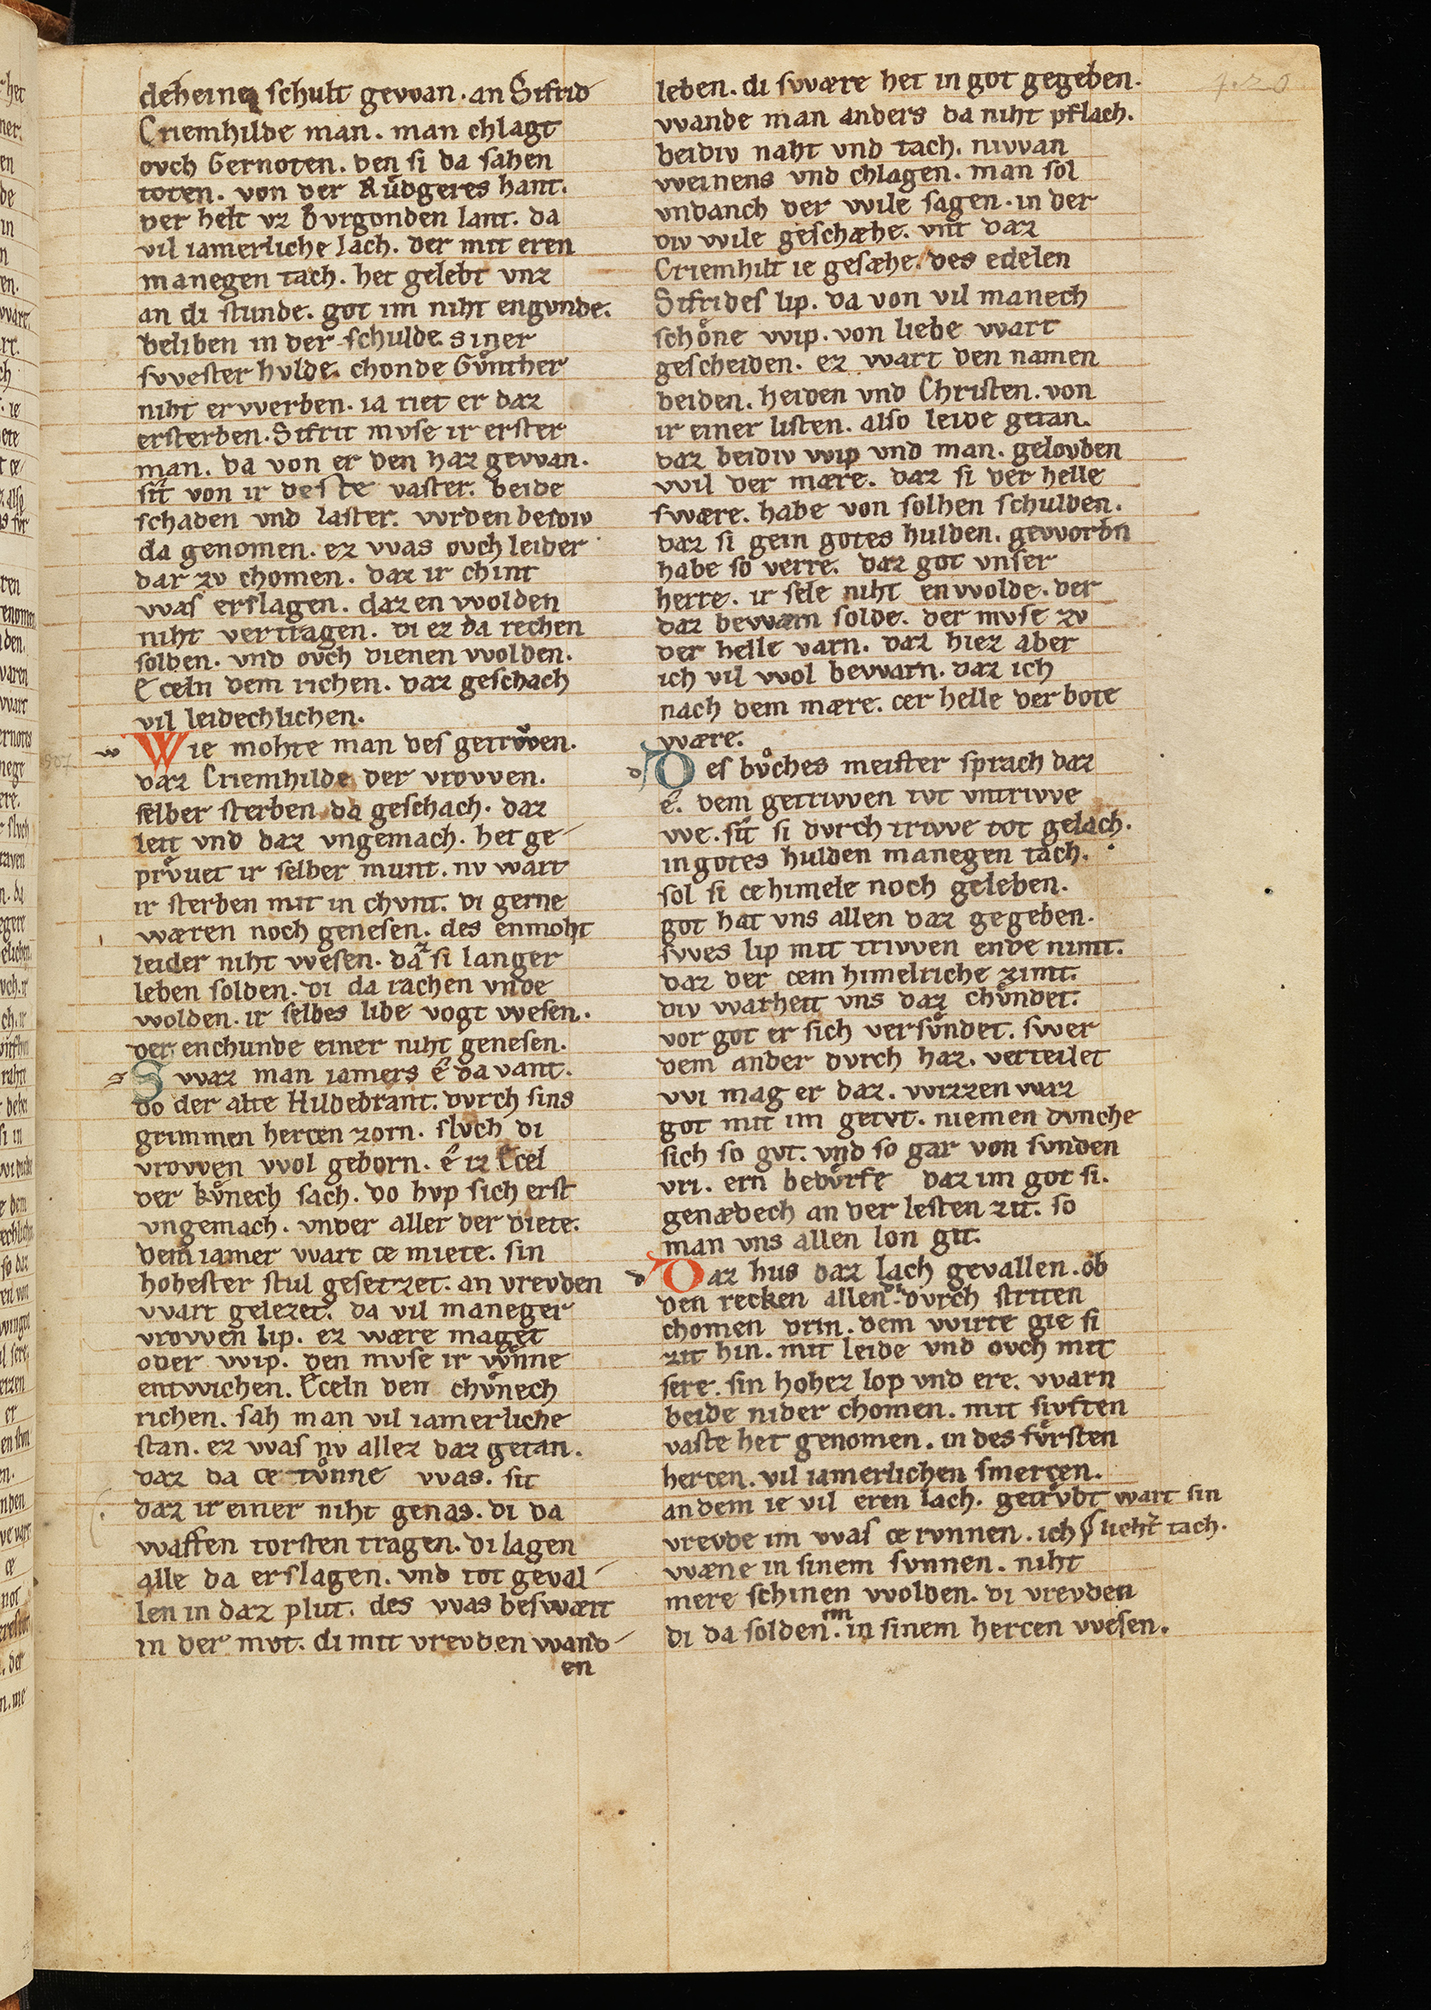 deheine schult gewan. an Sifrid
Criemhilde man. man chlagt
ovch Gernoten. den si da sahen
toten. von der Rv̊dgeres hant.
der helt vz Bvrgonden lant. da
vil iamerliche lach. der mit eren
manegen tach. het gelebt vnz
an di stunde. got im niht engvnde.
beliben in der schulde. siner
swester hvlde. chonde Gv̊nther
niht erwerben. ia riet er daz
ersterben. Sifrit mvse ir erster
man. da von er den haz gewan.
sit von ir deste vaster. beide
schaden vnd laster. wrden besviv
da genomen. ez was ovch leider
dar zv chomen. daz ir chint
was erslagen. daz en wolden
niht vertragen. di ez da rechen
solden. vnd ovch dienen wolden.
Eceln dem richen. daz geschach
vil leidechlichen.
Wie mohte man des getrwen.
daz Criemhilde der vrowen.
selber sterben da geschach. daz
leit vnd daz vngemach. het ge-
prv̊uet ir selber munt. nv wart
ir sterben mit in chvnt. di gerne
wæren noch genesen. des enmoht
leider niht wesen. daz si langer
leben solden. di da rachen vnde
wolden. ir selbes libe vogt wesen.
der enchunde einer niht genesen.
Swaz man iamers ê da vant.
do der alte Hildebrant. dvrch sins
grimmen hercen zorn. slvch di
vrowen wol geborn. ê iz Ecel
der kv̊nech sach. do hvp sich erst
vngemach. vnder aller der diete.
dem iamer wart ce miete. sin
hohester stul gesetzet. an vrevden
wart gelezet. da vil maneger
vrowen lip. ez wære maget
oder wip. den mvse ir wnne
entwichen. Eceln den chv̊nech
richen. sah man vil iamerliche
stan. ez was nv allez daz getan.
daz da ce tv̊nne was. sit
daz ir einer niht genas. di da
waffen torsten tragen. di lagen
alle da erslagen. vnd tot geval-
len in daz plut. des was beswært
in der mvt. di mit vrevden wand-
en
leben. di swære het in got gegeben.
wande man anders da niht pflach.
beidiv naht vnd tach. niwan
weinens vnd chlagen. man sol
vndanch der wile sagen. in der
div wile geschæhe. vnt daz
Criemhilt ie gesæhe. des edelen
Sifrides lip. da von vil manech
schöne wip. von liebe wart
gescheiden. ez wart den namen
beiden. heiden vnd Christen. von
ir einer listen. also leide getan.
daz beidiv wip vnd man. gelovben
wil der mære. daz si der helle
swære. habe von solhen schulden.
daz si gein gotes hulden. geworbn
habe so verre. daz got vnser
herre. ir sele niht enwolde. der
daz bewærn solde. der mvse zv
der helle varn. daz hiez aber
ich vil wol bewarn. daz ich
nach dem mære. cer helle der bote
wære.
Des bv̊ches meister sprach daz
ê. dem getriwen tvt vntriwe
we. sit si dvrch triwe tot gelach.
in gotes hulden manegen tach.
sol si ce himele noch geleben.
got hat vns allen daz gegeben.
swes lip mit triwen ende nimt.
daz der cem himelriche zimt.
div warheit vns daz chv̊ndet.
vor got er sich versv̊ndet. swer
dem ander dvrch haz. verteilet
wi mag er daz. wizzen waz
got mit im getvt. niemen dvnche
sich so gvt. vnd so gar von svnden
vri. ern bedv̊rfe daz im got si.
genædech an der lesten zit. so
man vns allen lon git.
Daz hus daz lach gevallen. ob
den recken allen. di dvrch striten
chomen drin. dem wirte gie si
zit hin. mit leide vnd ovch mit
sere. sin hohez lop vnd ere. warn
beide nider chomen. mit sivften
vaste het genomen. in des fv̊rsten
hercen. vil iamerlichen smercen.
an dem ie vil eren lach. getrv̊bt wart sin
liehter tach.
vrevde im was ce rvnnen. ich
wæne in sinem svnnen. niht
mere schinen wolden. di vrevden
di da solden. im in sinem hercen wesen.